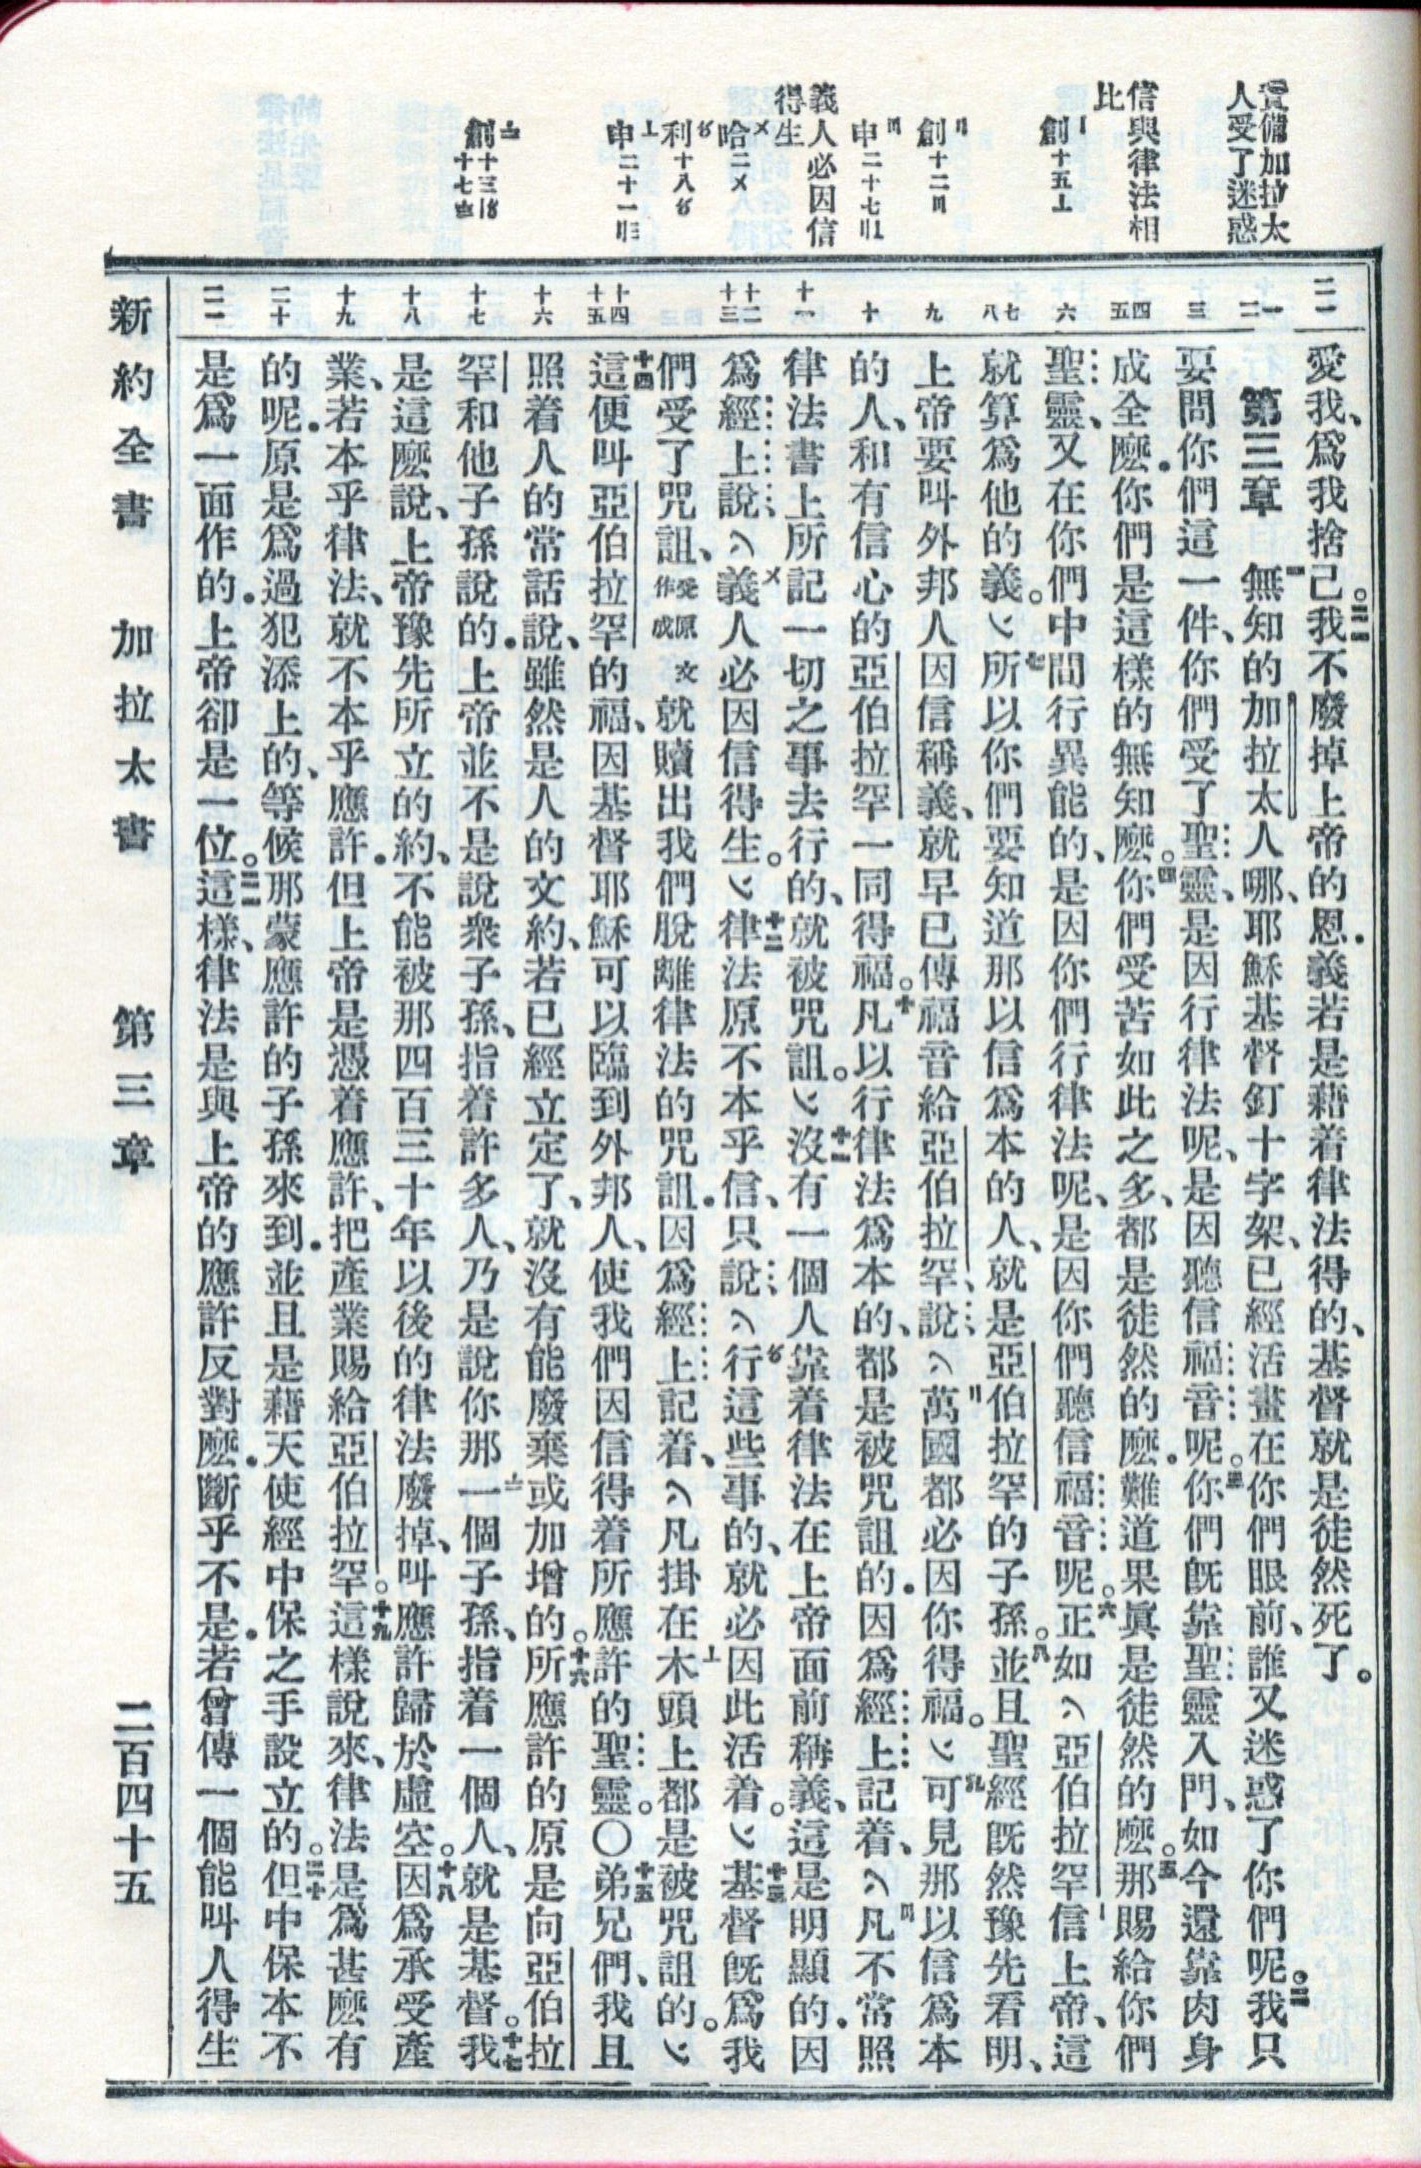 責備加拉太
人受了迷惑
信與律法相
比
創十五〦
創十二〣
申二十七〢〦
義人必因信
得生
哈二〤
利十八〥
申二十一〢〣
創十三〸〥
十七〨
愛我、爲我捨己。二一我不廢掉上帝的恩.義若是藉着律法得的、基督就是徒然死了。
第三章 一無知的加拉太人哪、耶穌基督釘十字架、已經活畫在你們眼前、誰又迷惑了你們呢。二我只
要問你們這一件、你們受了聖靈、是因行律法呢、是因聽信福音呢。三你們旣靠聖靈入門、如今還靠肉身
成全麽.你們是這樣的無知麽。四你們受苦如此之多、都是徒然的麽.難道果眞是徒然的麽。五那賜給你們
聖靈、又在你們中間行異能的、是因你們行律法呢、是因你們聽信福音呢。六正如亞伯拉罕信上帝、這
就算爲他的義。七所以你們要知道那以信爲本的人、就是亞伯拉罕的子孫。八並且聖經旣然豫先看明、
上帝要叫外邦人因信稱義、就早已傳福音給亞伯拉罕、說萬國都必因你得福。九可見那以信爲本
的人、和有信心的亞伯拉罕一同得福。十凡以行律法爲本的、都是被咒詛的.因爲經上記着、凡不常照
律法書上所記一切之事去行的、就被咒詛。十一沒有一個人靠着律法在上帝面前稱義、這是明顯的.因
爲經上說、義人必因信得生。十二律法原不本乎信、只說、行這些事的、就必因此活着。十三基督旣爲我
們受了咒詛、受原文作成就贖出我們脫離律法的咒詛.因爲經上記着、凡掛在木頭上都是被咒詛的。
十四這便叫亞伯拉罕的福、因基督耶穌可以臨到外邦人、使我們因信得着所應許的聖靈。〇十五弟兄們、我且
照着人的常話說、雖然是人的文約、若已經立定了、就沒有能廢棄或加增的。十六所應許的原是向亞伯拉
罕和他子孫說的.上帝並不是說衆子孫、指着許多人、乃是說你那一個子孫、指着一個人、就是基督。十七我
是這麽說、上帝豫先所立的約、不能被那四百三十年以後的律法廢掉、叫應許歸於虛空。十八因爲承受產
業、若本乎律法、就不本乎應許.但上帝是憑着應許、把產業賜給亞伯拉罕。十九這樣說來、律法是爲甚麽有
的呢.原是爲過犯添上的、等候那蒙應許的子孫來到.並且是藉天使經中保之手設立的。二十但中保本不
是爲一面作的.上帝卻是一位。二一這樣、律法是與上帝的應許反對麽.斷乎不是.若曾傳一個能叫人得生
新約全書 加拉太書 第三章 二百四十五